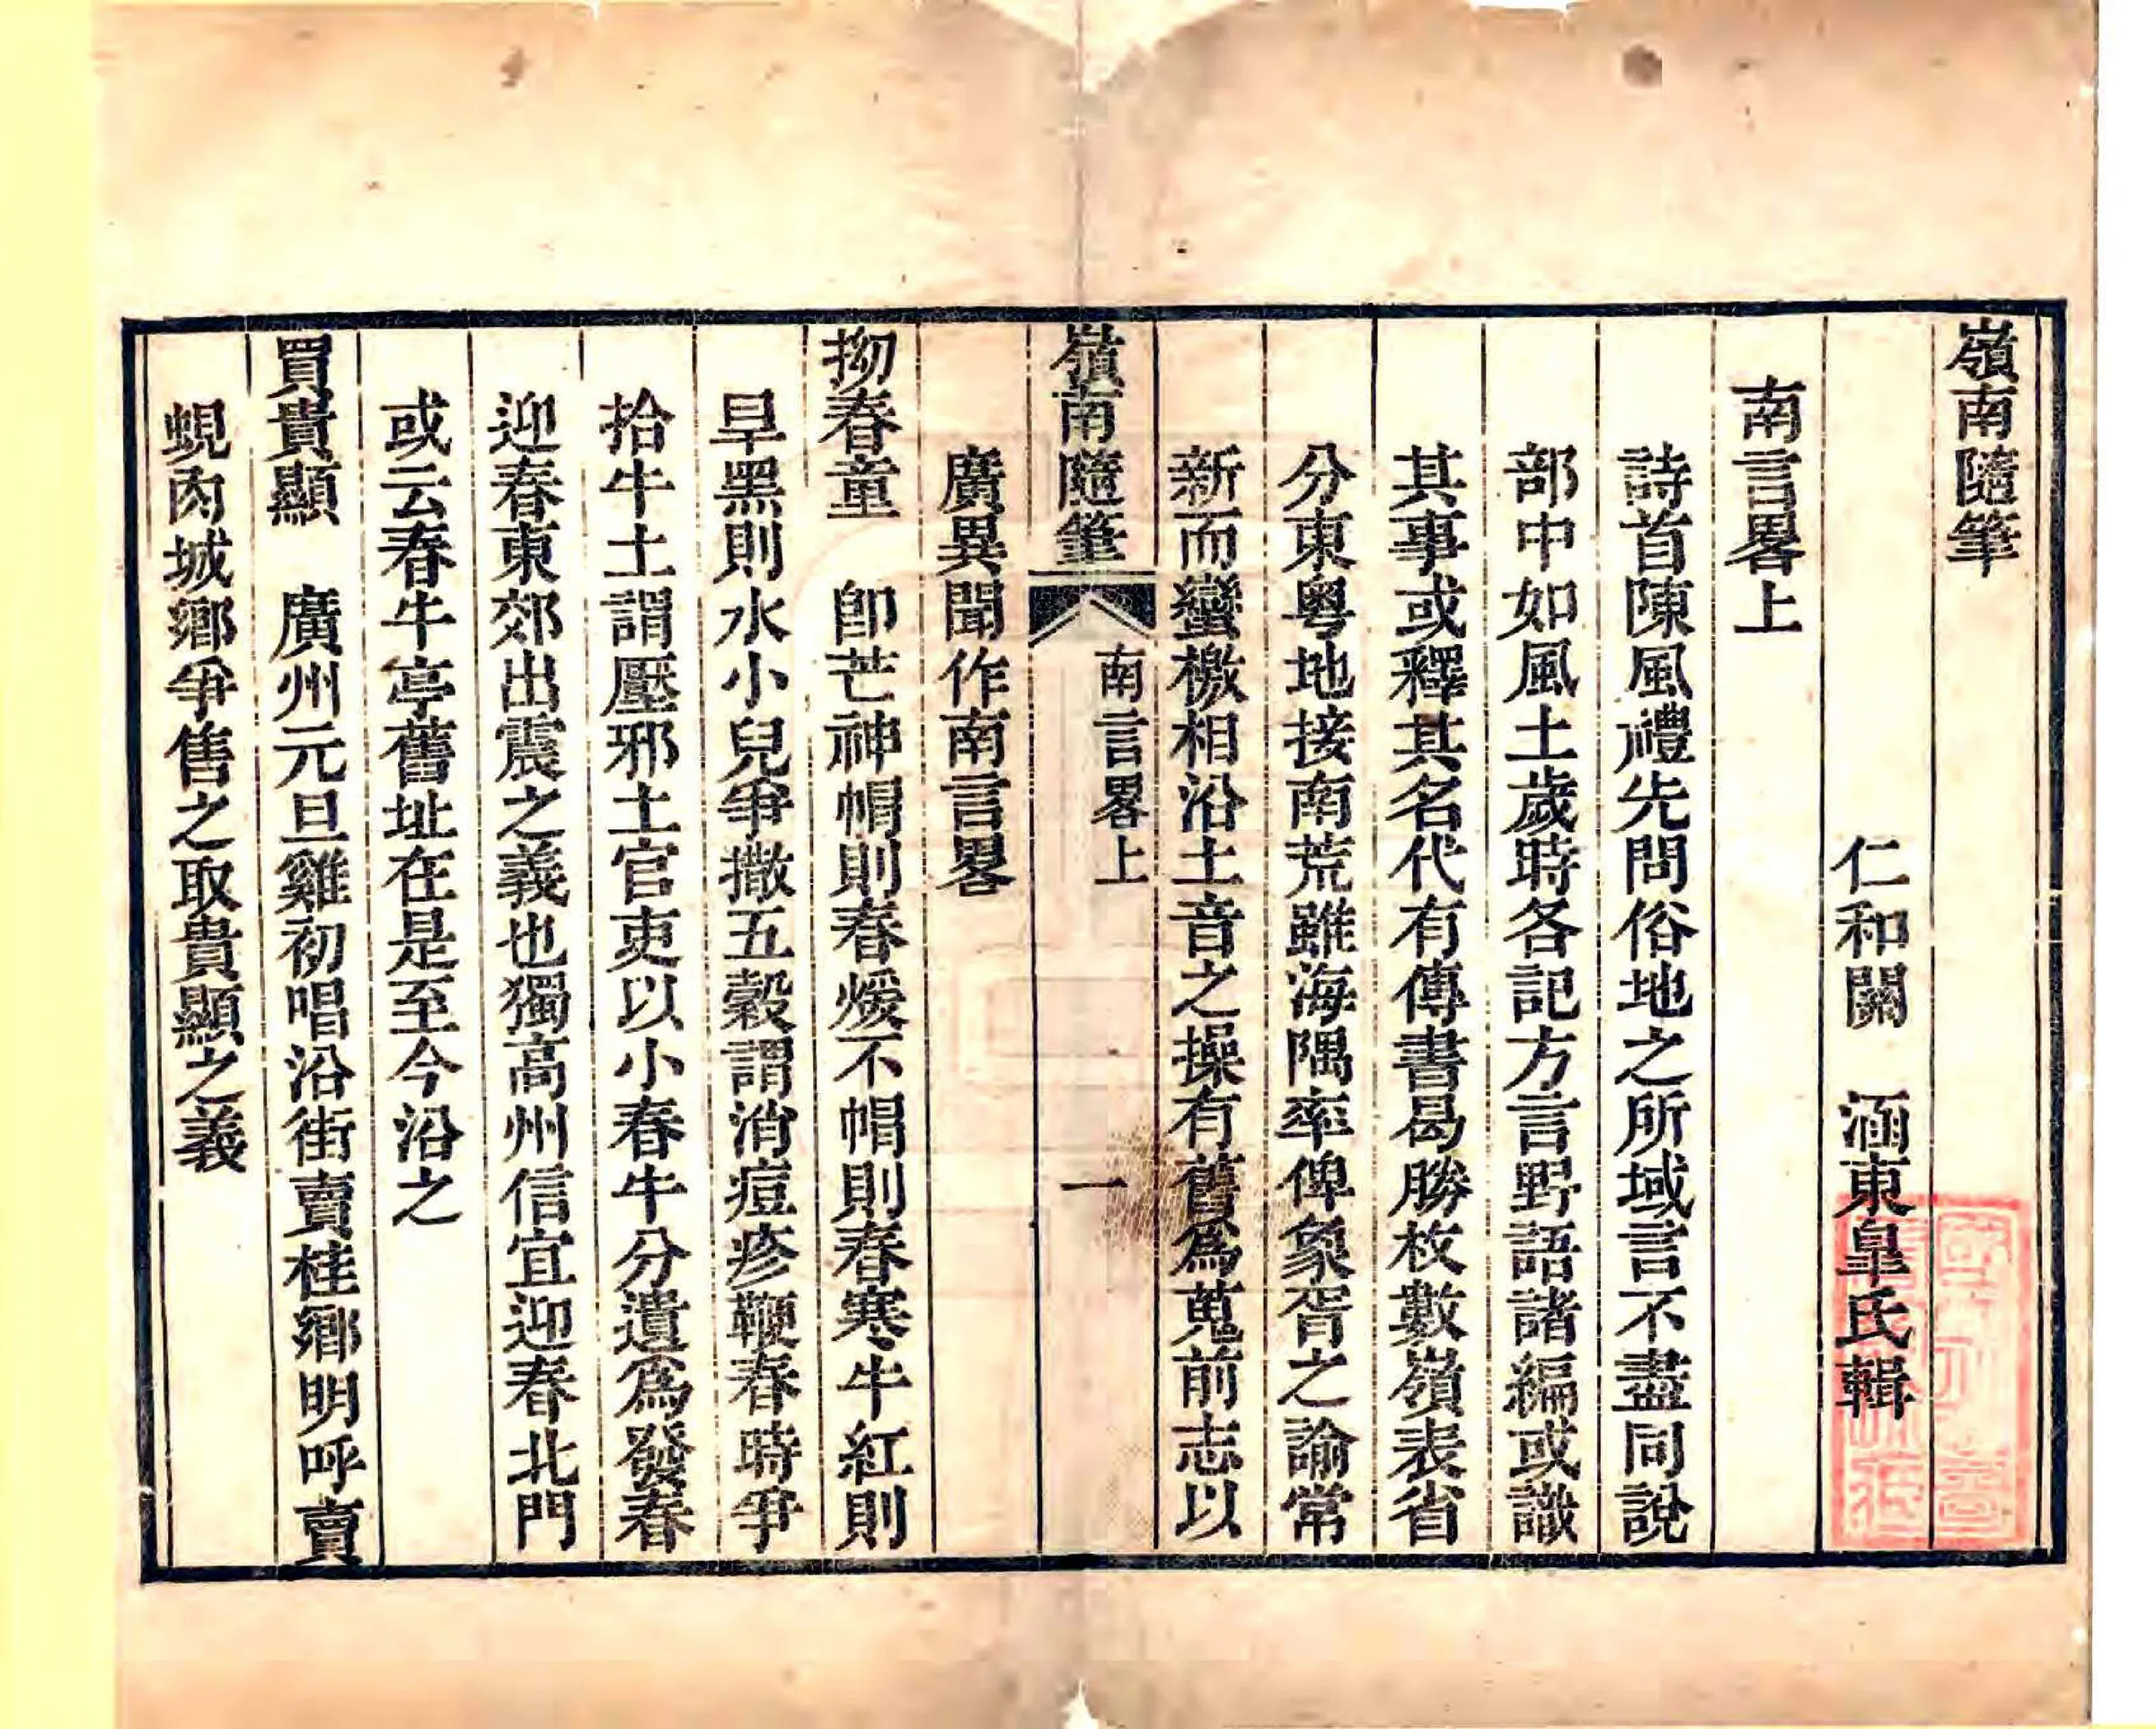 嶺南隨筆
仁和關　涵東臯氏輯
南言畧上
詩首陳風禮先問俗地之所域言不盡同說
部中如風土歲時各記方言野語諸編或識
其事或釋其名代有傳書曷勝枚數嶺表省
分東粵地接南荒雖海隅率俾象胥之諭常
新而蠻檄相沿土音之操有舊爲蒐前志以
嶺南隨筆　南言畧上　一
廣異聞作南言畧
拗春童　卽芒神帽則春煖不帽則春寒牛紅則
旱黑則水小兒爭撒五穀謂消痘疹鞭春時爭
拾牛土謂壓邪土官吏以小春牛分遺爲發春
迎春東郊出震之義也獨高州信宜迎春北門
或云春牛亭舊址在是至今沿之
買貴顯　廣州元旦雞初唱沿街賣桂鄉明呼賣
蜆肉城鄉爭售之取貴顯之義